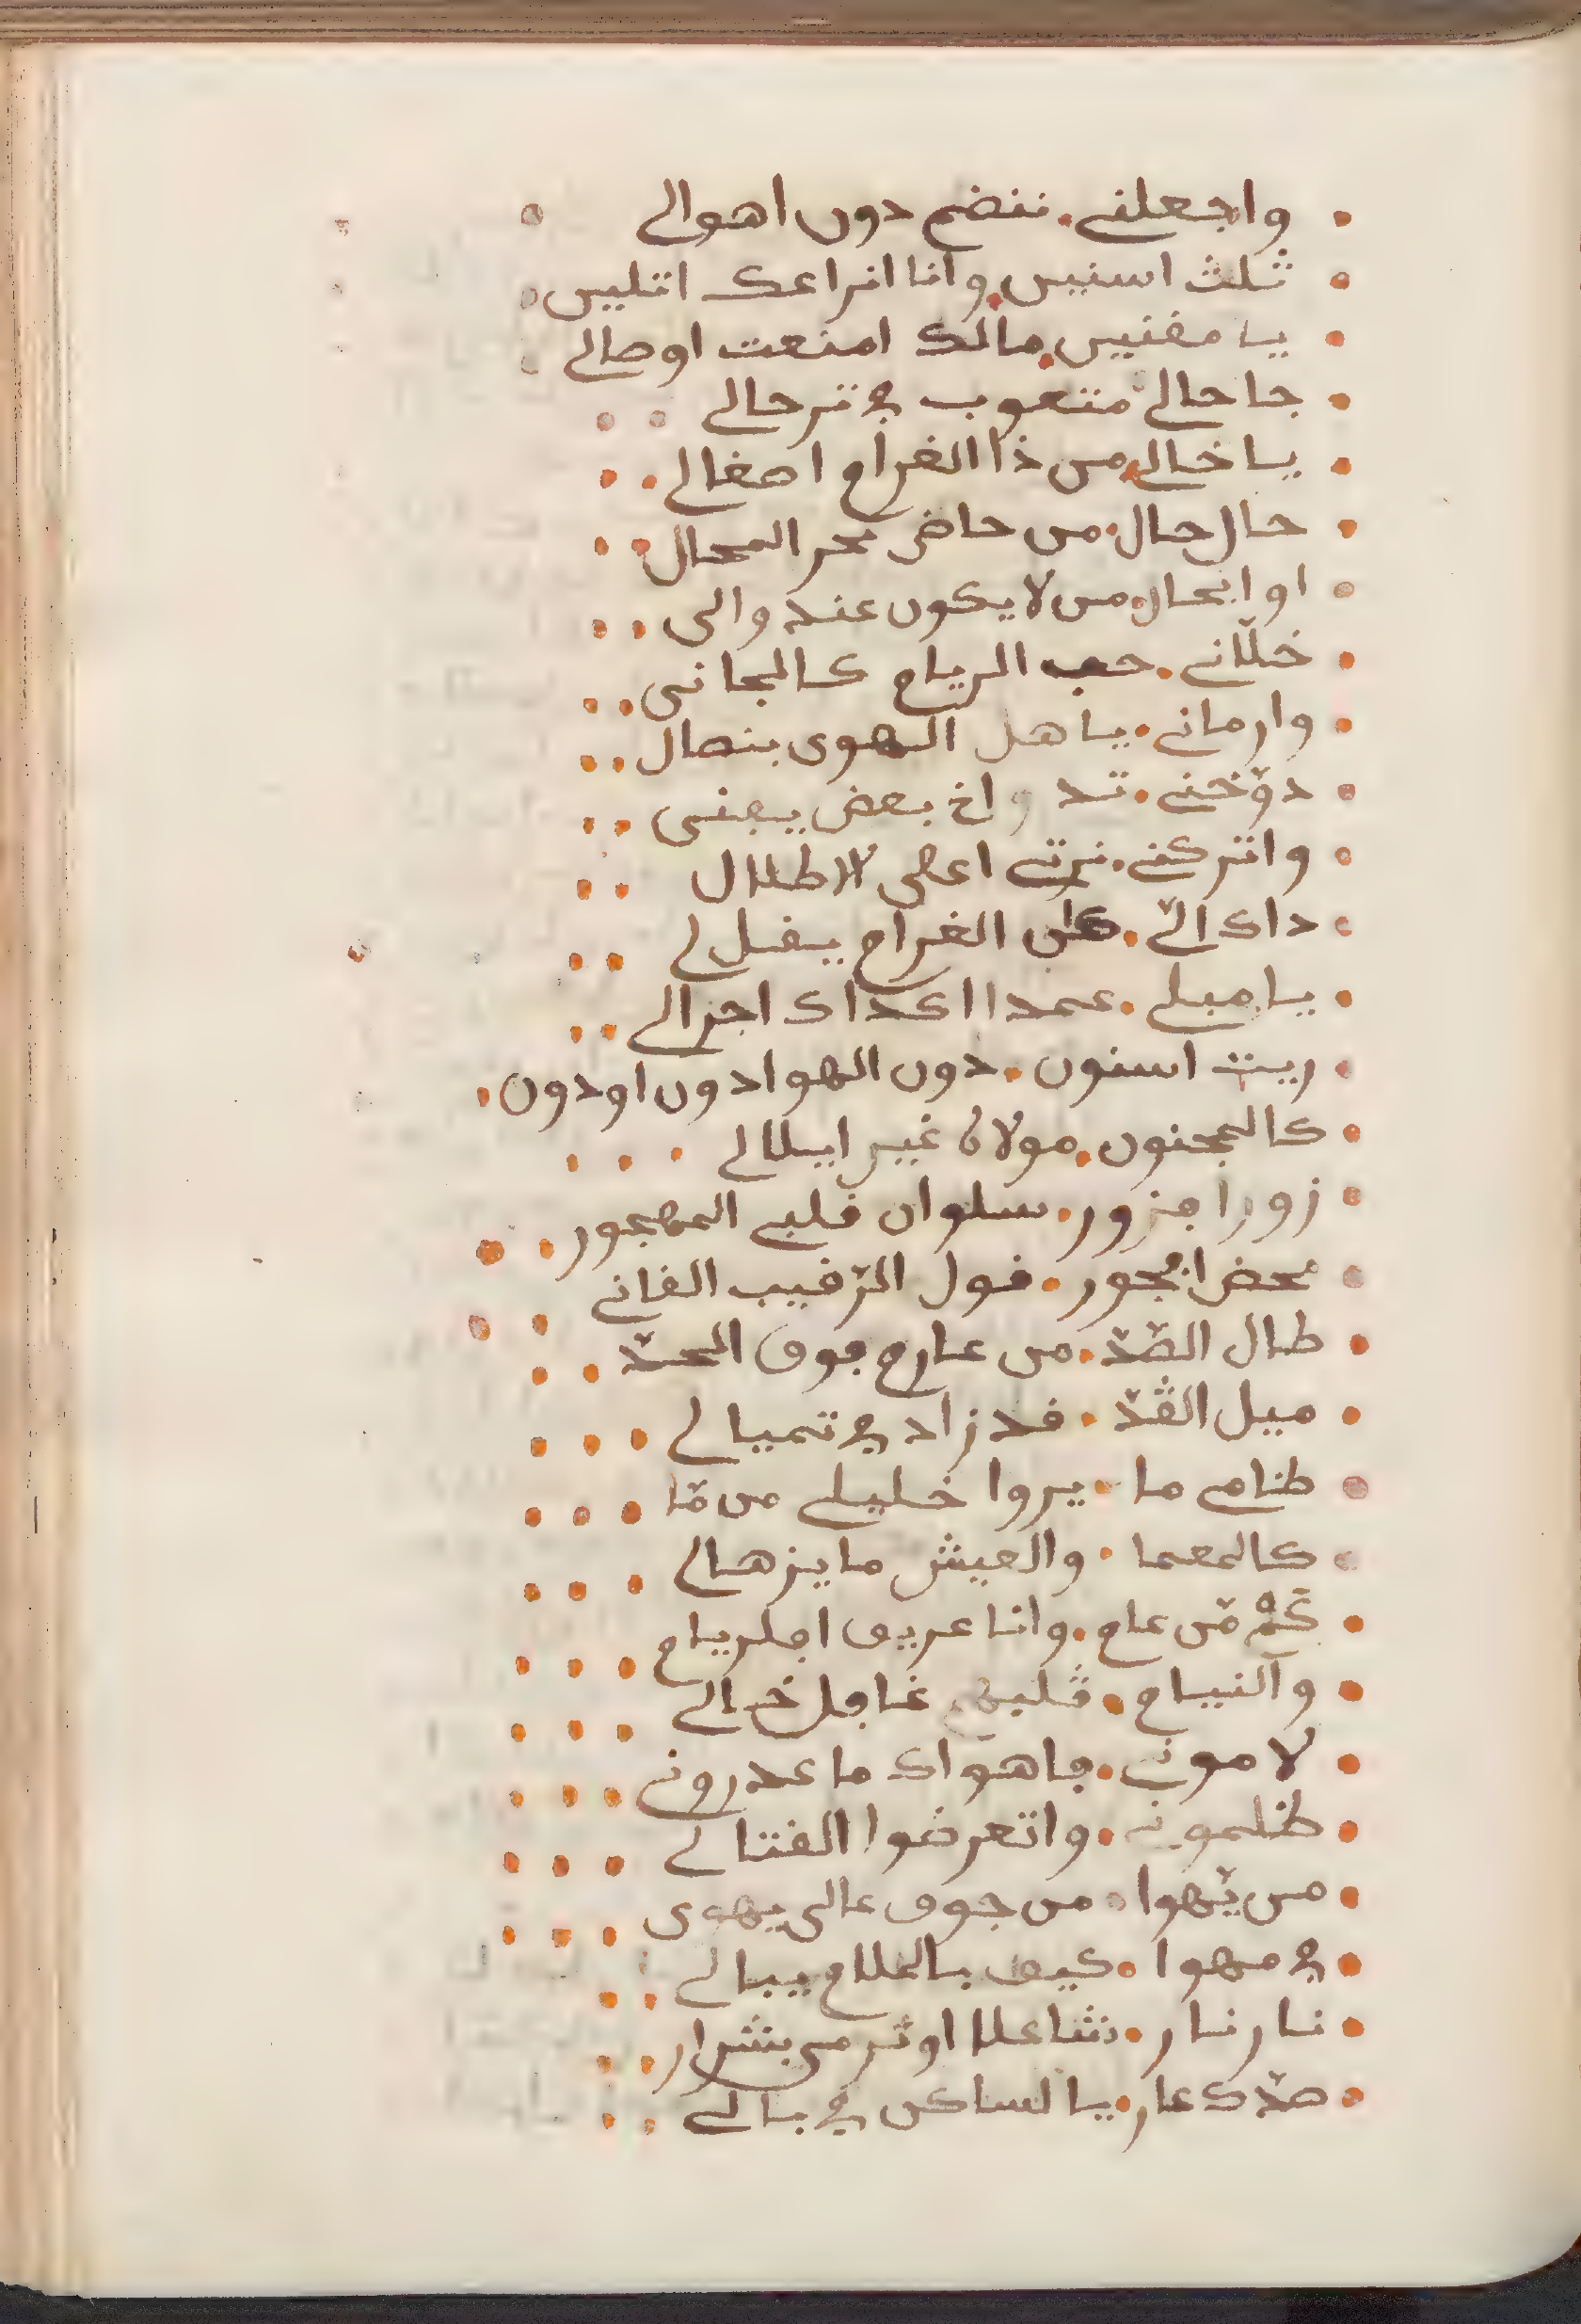 واجعلني. ننضم دون اهوالي
ثلث اسنين. وانا انراعك اتليين
يا مفنين. مالك امنعت اوصالي
جا حالي متعوب في ترحالي
يا خالي. من ذا الغرام اصغالي
حال حال. من حاض بحر المحال
او ابحال. من لا يكون عنده والى
خلّاني. حب الريام كالجانى
وارماني. يا هل الهوى بنصال
دوّخني. تد واخ بعض يعنى
واتركني. نرثي اعلى لاطلال
داك الّي. كان الغرام يفل لي
يا ميلي. عمدا اكداك اجرالي
ريت اسنون. دون الهوا دون اودون
كالمجنون. مولان غير ايلالي
زورا مزور. سلوان فلبي المهجور
محض افجور. فول الرّفيب الفاني
طال الصّدّ. من عارم فوق الحدّ
ميل القدّ. فد زاد في تميالي
طنامي ما. يروا خليلي من مّا
كالمعما. والعيش ما يزهالي
كم مّن عام. وانا غريق افلريام
والنيام. فلبهم غافل خالي
لاموني. فاهواك ما عدروني
ظلموني. واتعرضوا الفتالي
من يّهوا. من جوف عالى يهوى
في مهوا. كيف بالملام يبالي
نار نار. شاعلا اوترمي بشرار
صدّك عار. يا لساكن في بالي